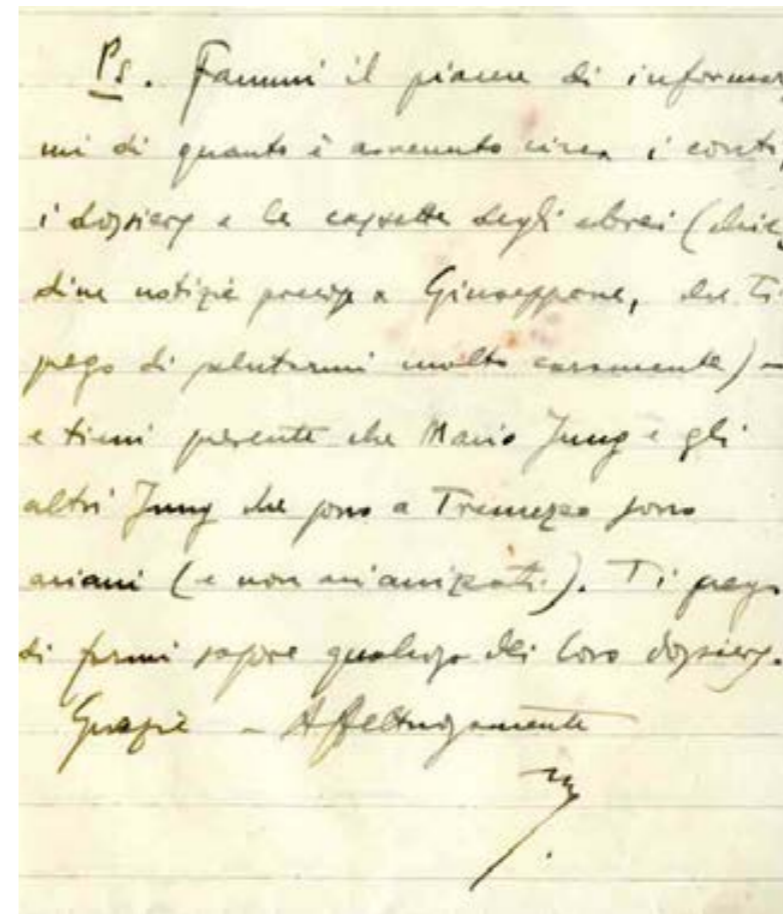 Ps. Fammi il piacere di informar
mi di quanto è avvenuto circa i conti,
i dossiers e le cassette degli ebrei (chie
dine notizie precise a Giuseppone, che Ti
prego di salutarmi molto caramente) –
e tieni presente che Mario Jung e gli
altri Jung che sono a Tremezzo sono
ariani (e non arianizzati). Ti prego
di farmi sapere qualcosa dei loro dossiers.
Grazie – Affettuosamente